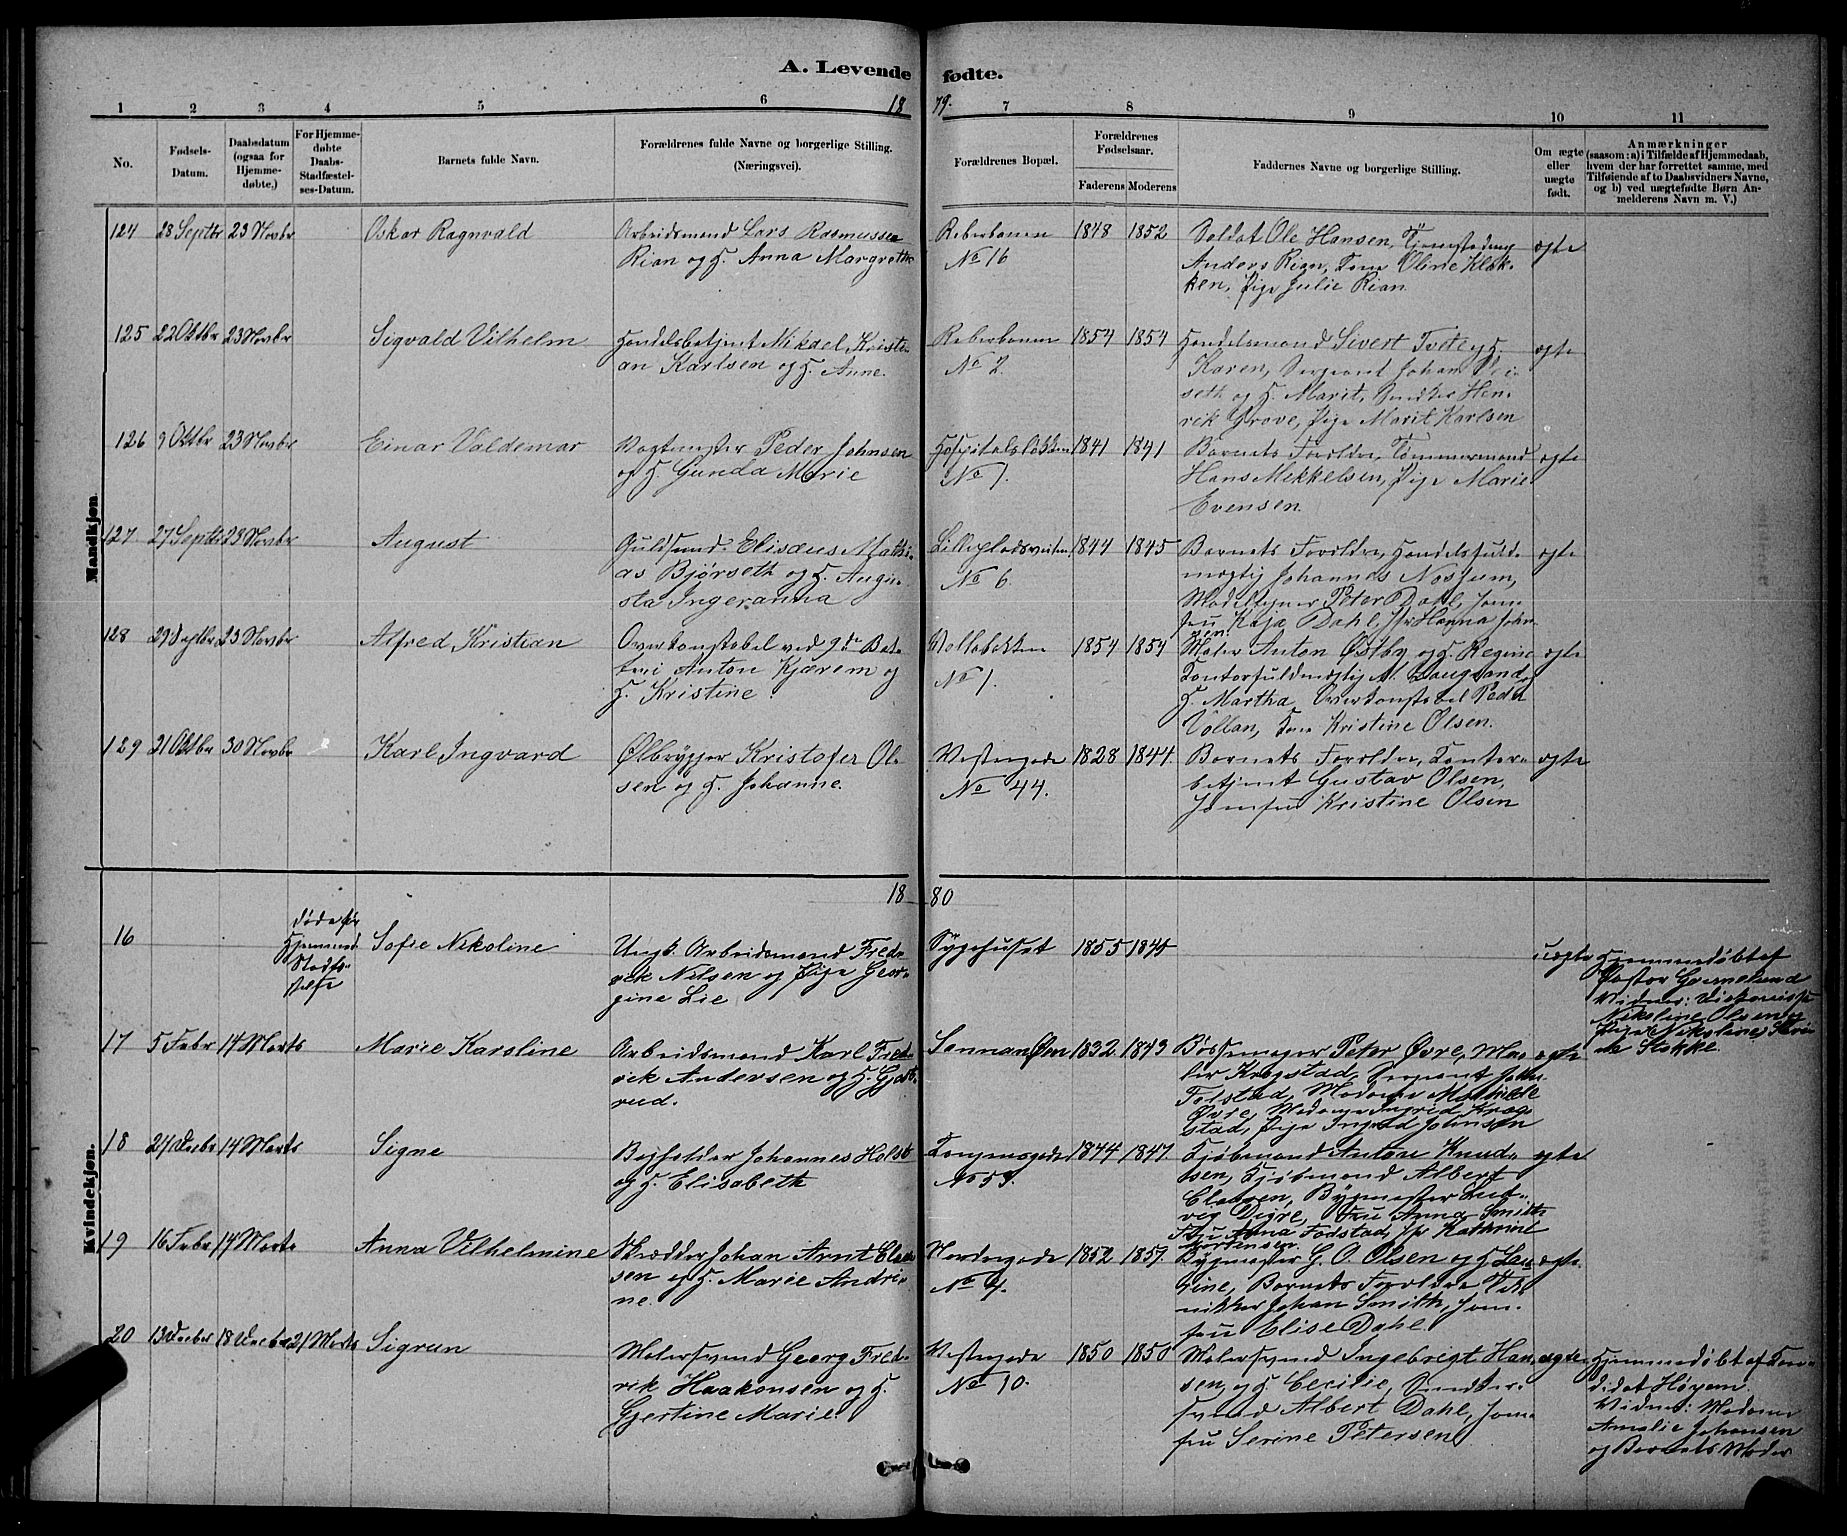 A. Levende fødte.
1 2 3 4 5 6 18 79. 7 8 9 10 11
No.
Fødsels-
Datum.
Daabsdatum
(ogsaa for
Hjemme-
døbte.)
For Hjemme-
døbte
Daabs-
Stadfæstel-
ses-Datum.
Barnets fulde Navn.
Forældrenes fulde Navne og borgerlige Stilling.
(Næringsvei).
Forældrenes Bopæl.
Forældrenes
Fødselsaar.
Faderens Moderens
Faddernes Navne og borgerlige Stilling.
Om ægte
eller
uægte
født.
Anmærkninger
(saasom: a) i Tilfælde af Hjemmedaab,
hvem der har forrettet samme, med
Tilføiende af to Daabsvidners Navne,
og b) ved uægtefødte Børn An-
melderens Navn m. V.)
Mandkjøn.
124 28 Septbr 23 Novbr
Oskar Ragnvald
Arbeidsmand Lars Rasmussen
Rian og H. Anna Margrethe
Reberbanen
No 16
1848 1852
Soldat Ole Hansen,
Anders Rian, Kone Oline Klok-
ken, Pige Julie Rian
ægte
125 22 Oktbr 23 Novbr
Sigvald Vilhelm
Handelsbetjent Mikael Kristi-
an Karlsen og H. Anne.
Reberbanen
No 2.
1854 1854
Handelsmand Sivert Tvete og H.
Karen, Sergeant Johan
seth og H. Marit, Snedker Hen-
rik Grove, Pige Marit Karlsen
ægte
126 9 Oktbr 23 Novbr
Einar Valdemar
Vagtmester Peder Johnsen
og H. Gunda Marie
Hospitalsløkken
No 1.
1841 1841
Barnets Forældre, Tømmermand
Hans Mekkelsen, Pige Marie
Evensen
ægte
127 27 Septbr 23 Novbr
August
Guldsmed Elisæus Mathi-
as Bjørseth og H. Augu-
sta Ingeranna
No 6.
1844 1845
Barnets Forældre, Handelsfuld-
mægtig Johannes Nossum,
Peter Dahl, Jom-
fru Kaja Dahl, Hanna John-
sen
ægte
128 29 Septbr 23 Novbr
Alfred Kristian
Overkonstabel ved 9de Bat-
teri Anton Kjærem og
H. Kristine
Vollabakken
No 1.
1854 1854
Maler Anton Østby og H. Regine
Kontorfuldmægtig M. Haugland og
H. Martha, Overkonstabel Peder
Vollan, Kone Kristine Olsen.
ægte
129 21 Oktbr 30 Novbr
Karl Ingvard
Ølbrygger Kristofer Ol-
sen og H. Johanne.
Vestregade
No 44.
1828 1844.
Barnets Forældre, Kontor-
betjent Gustav Olsen,
Jomfru Kristine Olsen
ægte
18 80
Kvindekjøn.
16
døde før
Hjemmed.
Stadfæ-
stelse
Sofie Nikoline
Ungk. Arbeidsmand Fred-
rik Nilsen og Pige Geor-
gine Lie
Sygehuset
1855
uægte
Hjemmedøbt af
Pastor
Vidner:
Nikoline Olsen og
Pige Nikoline
Stokke.
17 5 Febr 14 Marts
Marie Karoline
Arbeidsmand Karl Fred-
rik Andersen og H. Gjert-
rud.
1832 1843
Bøssemager Peter Øvre, Ma-
ler Krogstad, Sergeant John
Folstad, Madame Mathilde
Øvre, Madame Ingrid Krog-
stad, Pige Ingrid Johnsen
ægte
18 14 Marts
Signe
Bogholder Johannes Holst
og H. Elisabeth
Kongensgade
No 53.
1844 1847
Kjøbmand Anton Knud-
sen, Kjøbmand Albert
Claosen, Bygmester Lud-
vig Digre, Fru Anna Smith
Fru Anna Fodstad, Kathrine
Mortensen.
ægte
19 16 Febr 14 Marts
Anna Vilhelmine
Skrædder Johan Arnt Cla-
sen og H. Marie Andri-
ne.
Nordregade
1852 1857.
Bygmester G. O. Olsen og H.
Barnets Forældre
Johan Smith, Jom-
fru Elise Dahl.
ægte
20 13 Decbr 18 Decbr 21 Marts
Sigrun
Malersvend Georg Fred-
rik Haakonsen og H.
Gjertine Marie.
Vestregade
No 10.
1850 1850
Malersvend Ingebrigt Han-
sen og H. Cecilie, Snedker-
svend Albert Dahl, Jom-
fru Serine Petersen
ægte
Hjemmedøbt af Kan-
didat Høyem.
Vidner: Madame
Amalie Johansen
og Barnets Moder